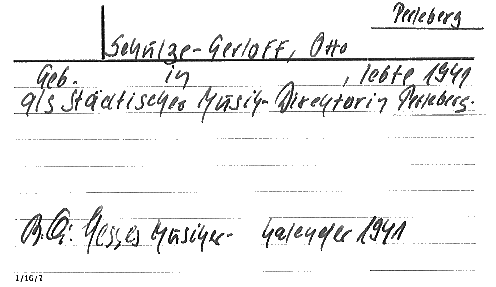 Perleberg
Schulze-Gerloff, Otto
Geb. in , lebte 1941
als Städtischer Musik-Direktor in Perleberg.
B.Q.: Hesses Musiker-Kalender 1941
1/16/7